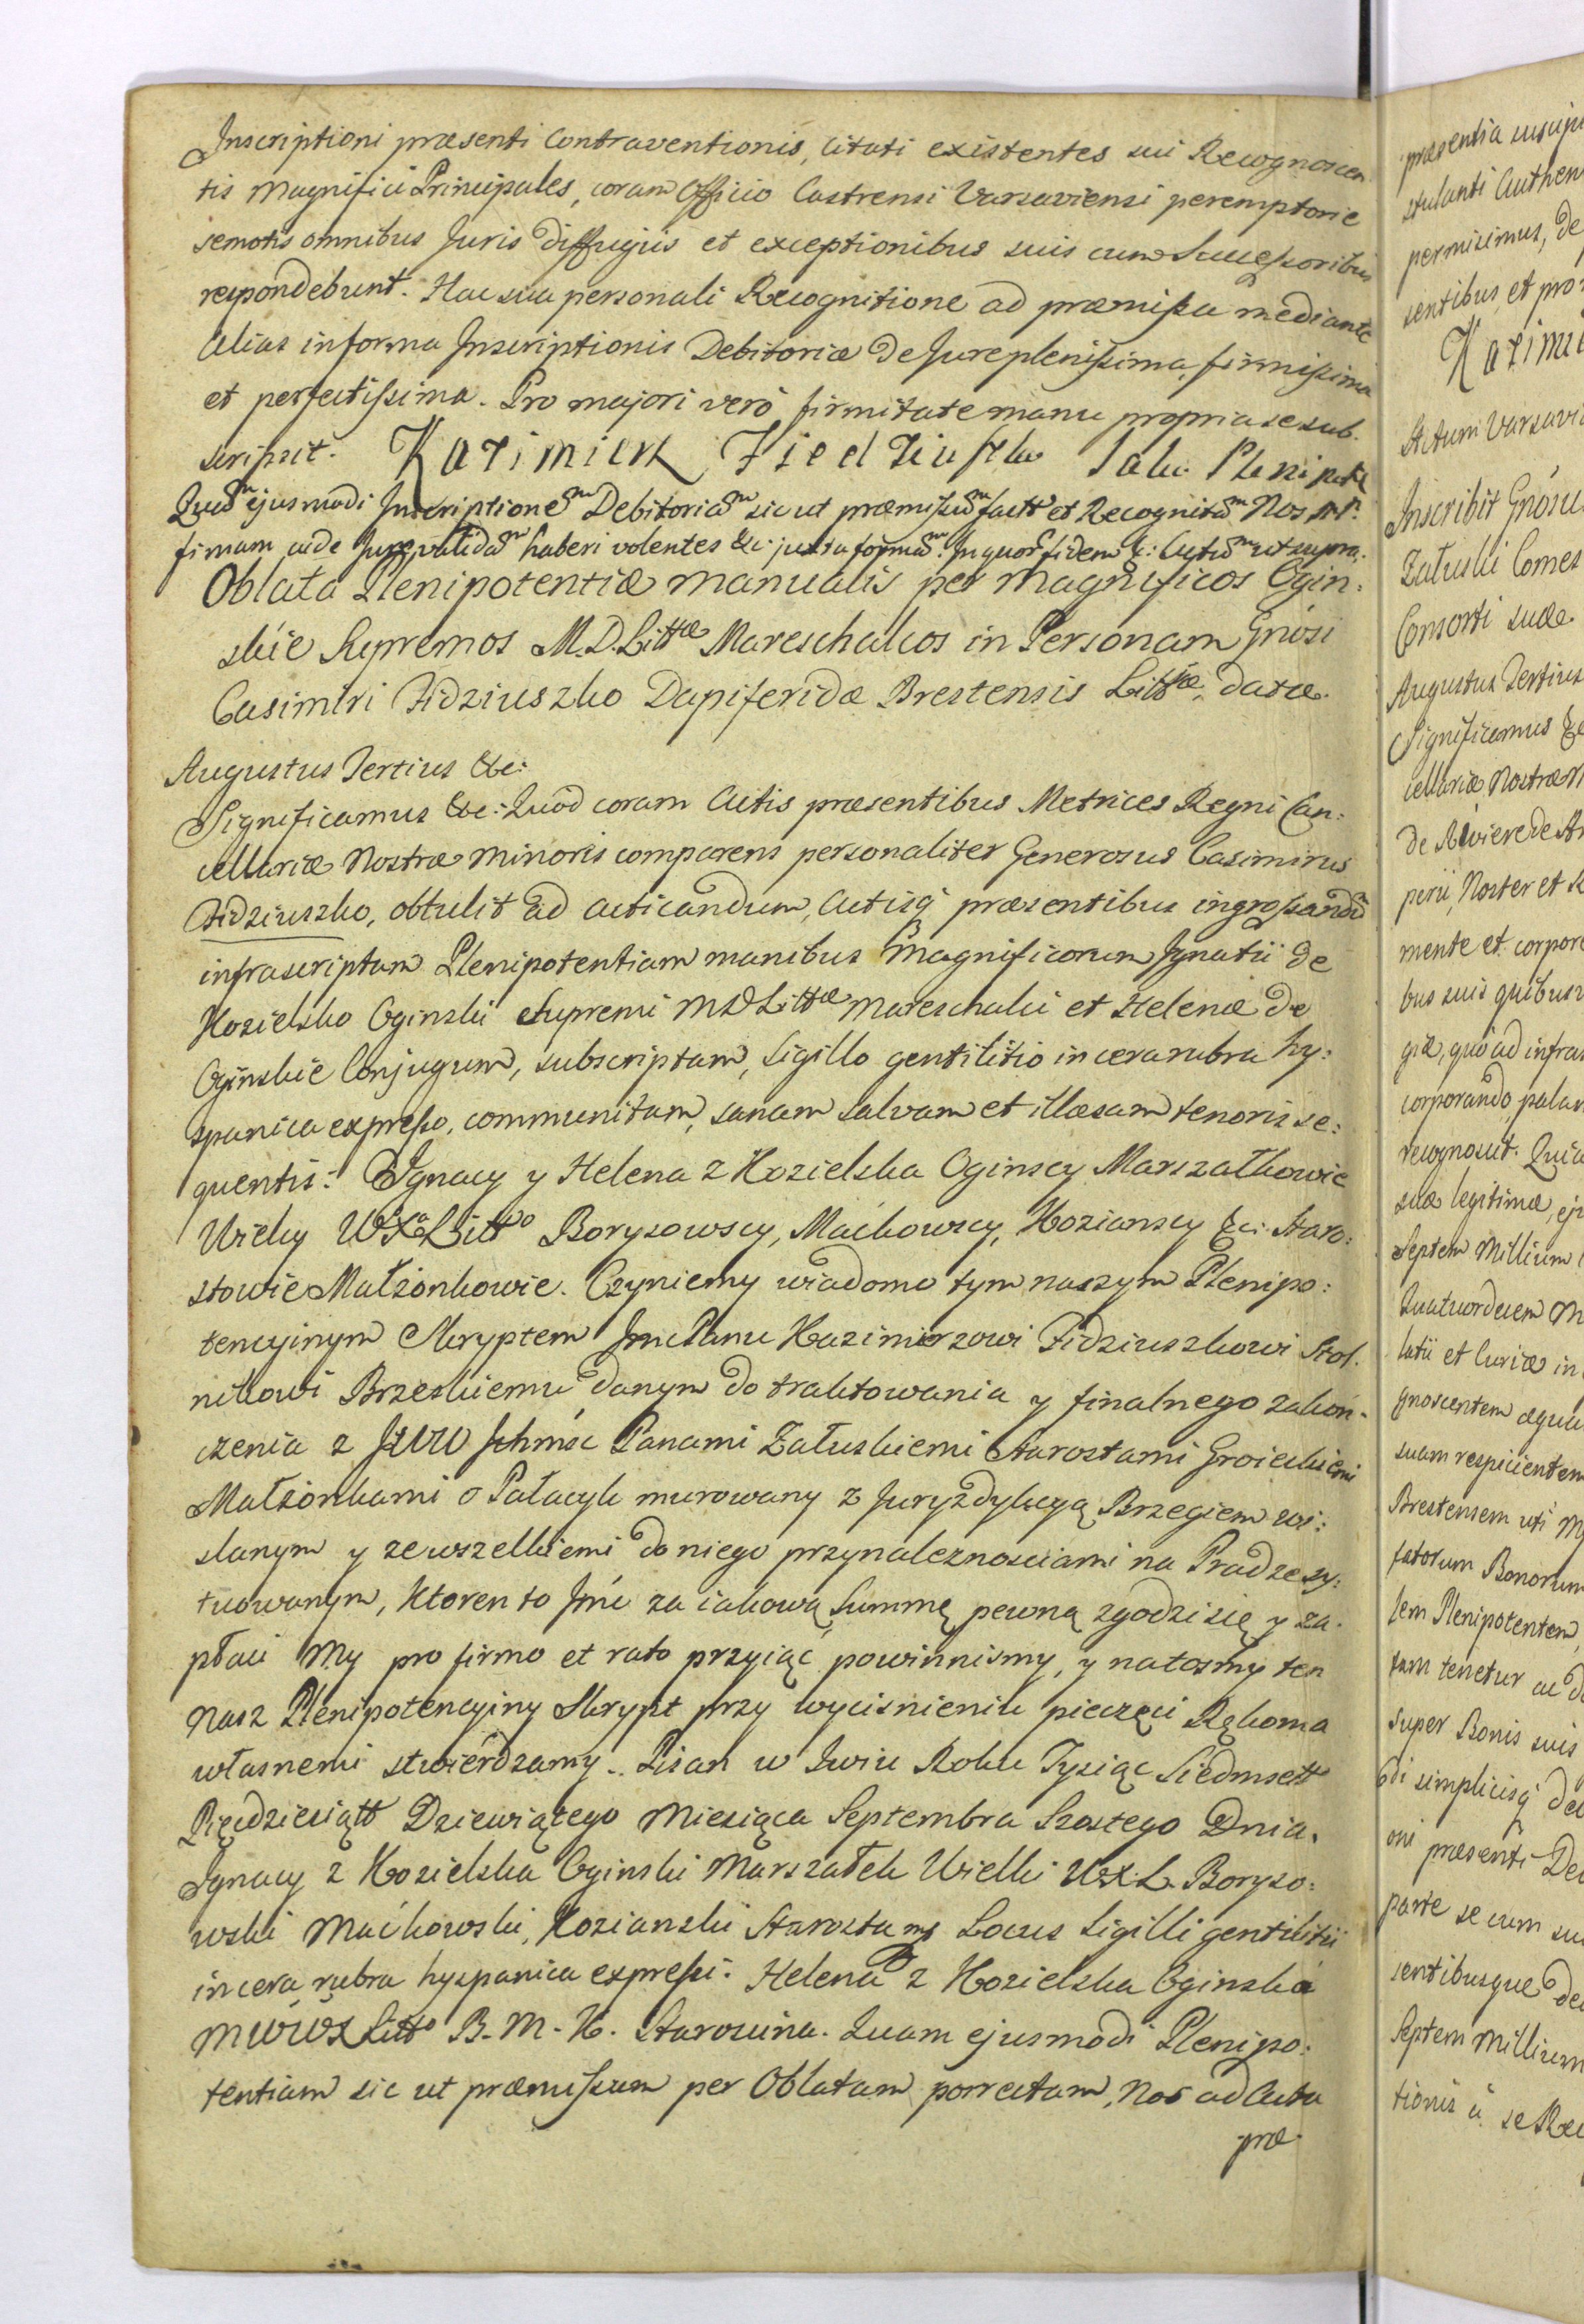 Inscriptioni præsenti Contraventionis, Citati existentes sui Recognoscen
tis Magnifici Principales, coram Officio Castrensi Varsaviensi peremptorie
semotis omnibus Juris diffugijs et exceptionibus suis cum Successoribus
respondebunt. Hac sua personali Recognitione ad præmissa mediante
Alias informa Inscriptionis Debitoriæ de Jure plenissima, firmissima
et perfectissima. Pro majori verò firmitate manu propria se sub.
scripsit. Kazimierz
Quã ejusmodi Inscriptionẽ Debitoriã sic ut præmissũ factã et Recognitã Nos
firmam acde Jure validã haberi volentes &c: juxta formã. In quor fidem &: Actũ ut supra.
Oblata Plenipotentiæ manualis per Magnificos Ogin:
skie Supremos M.D.Littæ Mareschalcos in Personam Gnosi
Casimiri Fidziuszko Dapiferidæ Brestensis Littæ, datæ.
Augustus Tertius &c:
Significamus &c: Quod coram Actis præsentibus Metrices Regni Can:
cellariæ Nostræ Minoris comparens personaliter Generosus Casimirus
Fidziuszko, obtulit ad acticandum, Actisq præsentibus ingrossandũ
infrascriptam Plenipotentiam manibus Magnificorum Ignatii de
Kozielsko Oginski Supremi MDLittæ Mareschalci et Helenæ de
Oginskie Conjugum, subscriptam, Sigillo gentilitio in cera rubra hy:
spanica expresso, communitam, sanam salvam et illæsam tenoris se:
quentis: Ignacy y Helena z Kozielska Oginscy Marszałkowie
Wielcy WXLitto Borysowscy, Maćkowscy, Kozianscy &c: Staro:
stowie Małżonkowie. Czyniemy wiadomo tym naszym Plenipo:
tencyinym Skryptem Jmć Panu Kazimierzowi Fidziuszkowi Stol.
nikowi Brzeskiemu, danym do traktowania y finalnego zakoń-
czenia z JWW Jchmść Panami Załuskiemi Starostami Groieckiemi
Małżonkami o Pałacyk murowany z Juryzdykcyą Brzegiem wi:
slanym y zewszelkiemi do niego przynależnosciami na Pradze sy:
tuowanym, Ktoren to Jmć za iakową Summę pewną zgodzi się y za.
płaci My pro firmo et rato przyiąć powinnismy, y na tosmy ten
nasz Plenipotencyiny Skrypt przy wycisnieniu pieczęci Rękoma
własnemi stwierdzamy. Pisan w Iwiu Roku Tysiąc Siedmsett
Pięcdziesiątt Dziewiątego Miesiąca Septembra Szostego Dnia.
Ignacy z Kozielska Oginski Marszałek Wielki W.X.L. Boryso:
wski Maćkowski, Kozianski Starosta mp Locus Sigilli gentilitii
in cera rubra hyspanica expressi. Helena z Kozielska Oginska
MWWXLitto B. M. K. Staroscina. Quam ejusmodi Plenipo:
tentiam sic ut præmissum per Oblatam porrectam, Nos ad Acta
præ.
præsentia suscipi
stulanti Authen
permisimus, de
sentibus, et pro
Kazimi
Actum Varsavi
Inscribit Gnosu
Załuski Comes
Consorti suæ.
Augustus Tertius
Significamus &c
cellariæ Nostræ M
de Riviere de
perii, Noster et
mente et corpore
bus suis quibusv
giæ, quo ad infras
corporando, palam
recognovit. Quia
suæ legitimæ, ej
Septem Millium
Quatuordecem M
latii et Curiæ in
gnoscentem æqua
suam respicientem
Brestensem uti M
fatorum Bonorum
lem Plenipotentem
tam tenetur ac d
super Bonis suis
di simplicisq de
oni præsenti De
parte se cum su
sentibusque de
Septem Millium
tionis à se Re